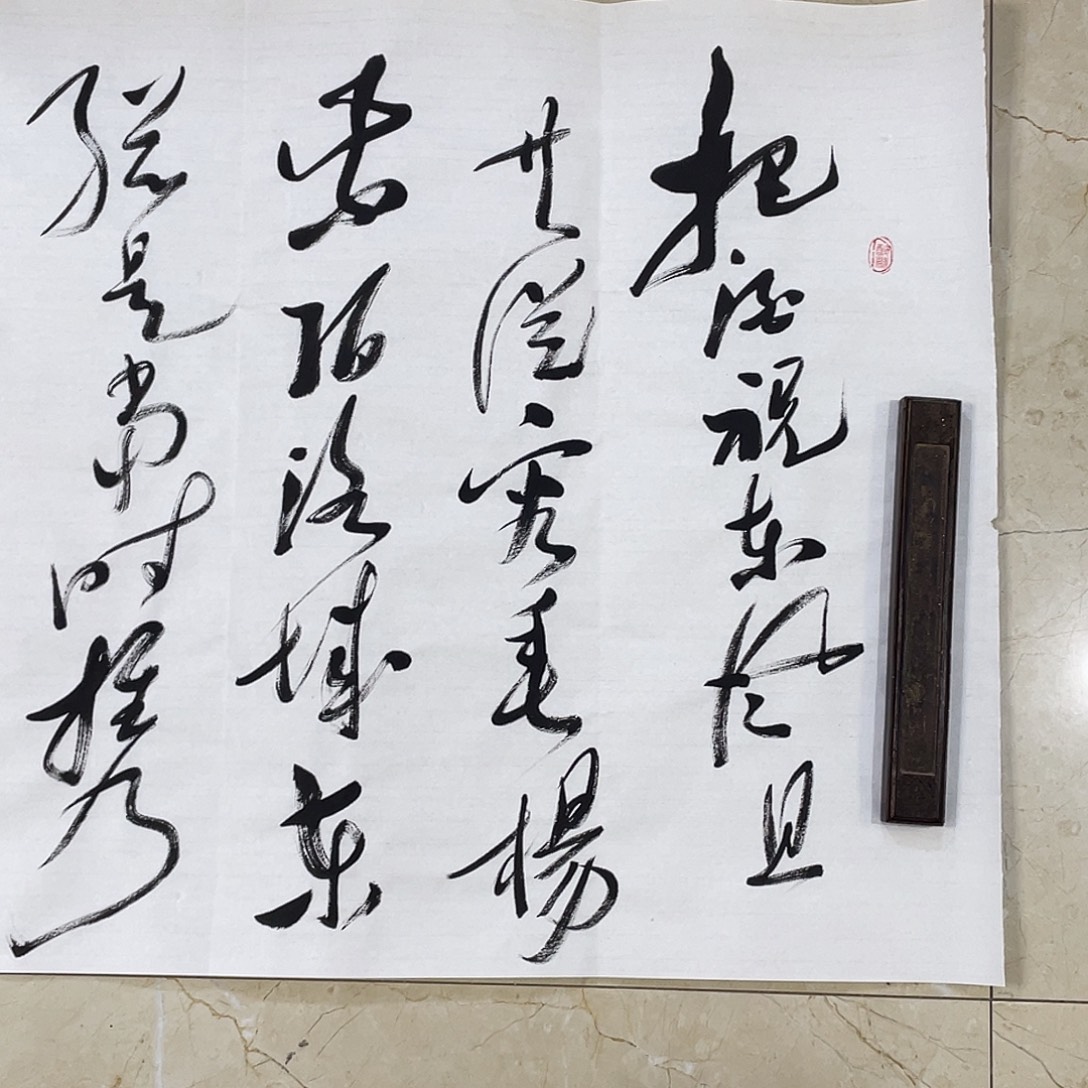 把酒祝东风且
共从容垂杨
紫陌洛城东
总是当时携手